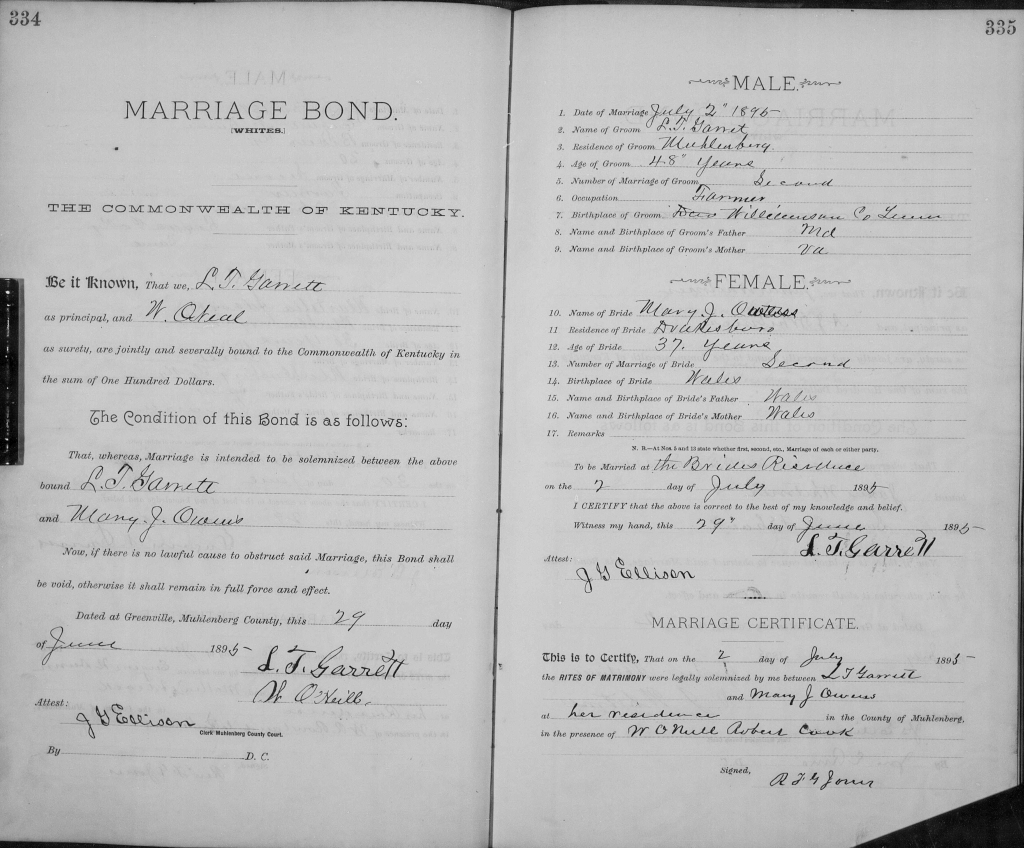 334
MARRIAGE BOND.
[WHITES.]
THE COMMONWEALTH OF KENTUCKY.
Be it Known, That we, L. T. Garrett
as principal, and W. ONeal
as surety, are jointly and severally bound to the Commonwealth of Kentucky in
the sum of One Hundred Dollars.
The Condition of this Bond is as follows:
That, whereas, Marriage is intended to be solemnized between the above
bound L. T. Garrett
and Mary. J. Owens
Now, if there is no lawful cause to obstruct said Marriage, this Bond shall
be void, otherwise it shall remain in full force and effect.
Dated at Greenville, Muhlenberg County, this 29 day
of June 1895
L. T. Garrett
W O'Neill
Attest:
J G Ellison
Clerk Muhlenberg County Court.
By D. C.
335
MALE.
1. Date of Marriage July 2" 1895
2. Name of Groom L. T. Garret
3. Residence of Groom Muhlenberg
4. Age of Groom 48" Years
5. Number of Marriage of Groom Second
6. Occupation Farmer
7. Birthplace of Groom Williamson Co Tenn
8. Name and Birthplace of Groom's Father Md
9. Name and Birthplace of Groom's Mother Va
FEMALE.
10. Name of Bride Mary. J. Owens
11 Residence of Bride Drakesboro
12. Age of Bride 37. Years
13. Number of Marriage of Bride Second
14. Birthplace of Bride Wales
15. Name and Birthplace of Bride's Father Wales
16. Name and Birthplace of Bride's Mother Wales
17. Remarks
N. B.—At Nos 5 and 13 state whether first, second, etc., Marriage of each or either party.
To be Married at the Brides Risidence
on the 2 day of July 1895
I CERTIFY that the above is correct to the best of my knowledge and belief.
Witness my hand, this 29" day of June 1895
L. T. Garrett
Attest:
J G Ellison
MARRIAGE CERTIFICATE.
This is to Certify, That on the 2 day of July 1895
the RITES OF MATRIMONY were legally solemnized by me between L T Garrett
and Mary J Owens
at her residence in the County of Muhlenberg,
in the presence of W O Neill Robert Cook
Signed,
Jones